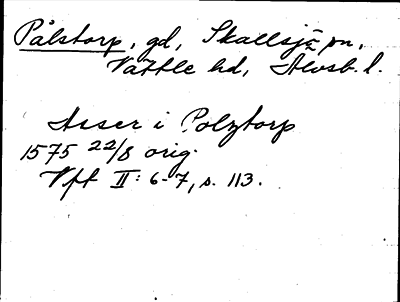 Pålstorp, gd, Skallsjö sn,
Vättle hd, Älvsb. l.
Asser i Polztorp
1575 22/8 orig.
Vft II: 6-7, s. 113.